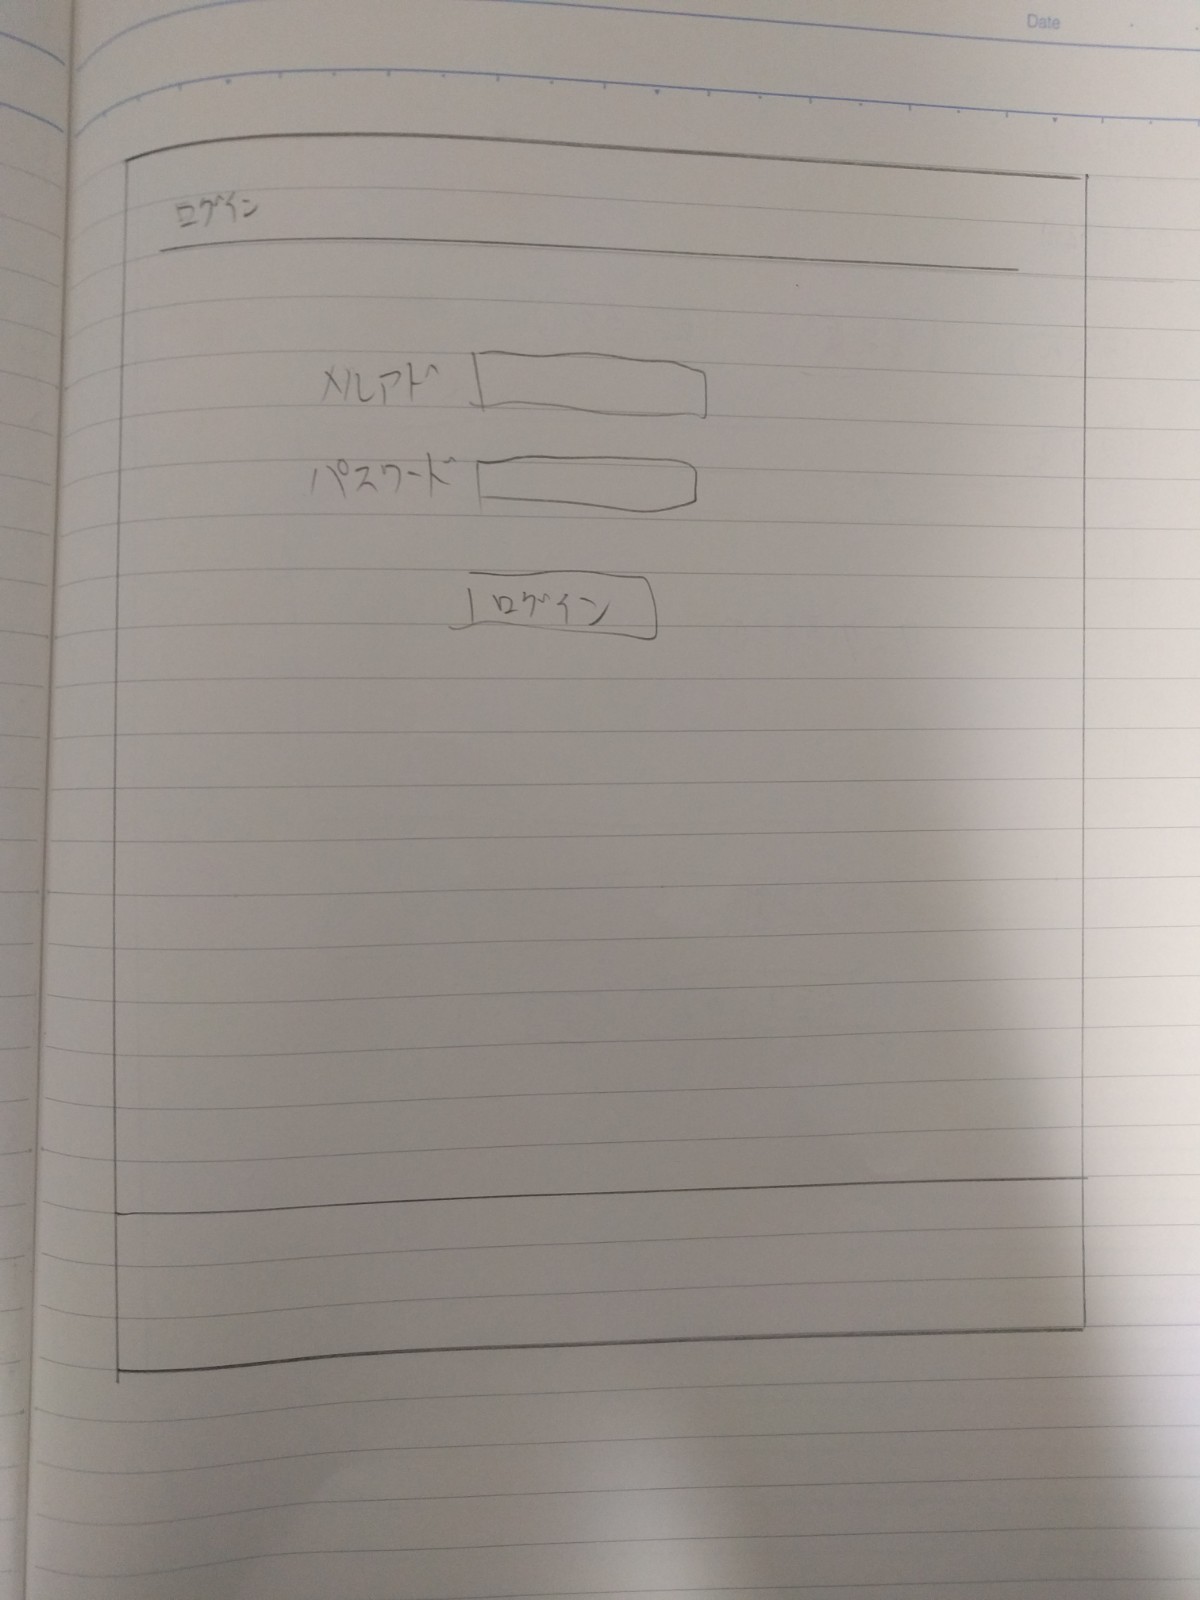 Date
ログイン
メルアド
パスワード
ログイン